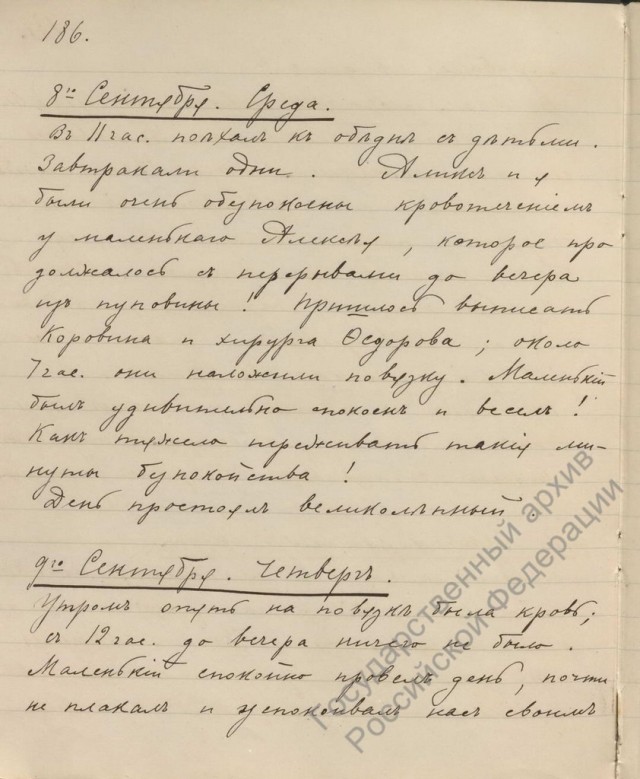 186.
8го Сентября. Среда.
Въ 11 час. поѣхалъ къ обѣднѣ съ дѣтьми.
Завтракали одни. Аликс и я
были очень обезпокоены кровотеченіемъ
у маленькаго Алексѣя, которое про
должалось съ перерывами до вечера
изъ пуповины! Пришлось выписать
Коровина и хирурга Ѳедорова; около
7 час. они наложили повязку. Маленькій
былъ удивительно спокоенъ и веселъ!
Какъ тяжело переживать такія ми-
нуты безпокойства!
День простоялъ великолѣпный.
9го Сентября. Четвергъ.
Утромъ опять на повязкѣ была кровь;
съ 12 час. до вечера ничего не было.
Маленькій спокойно провелъ день, почти
не плакалъ и успокоивалъ насъ своимъ
Государственный архив
Российской Федерации